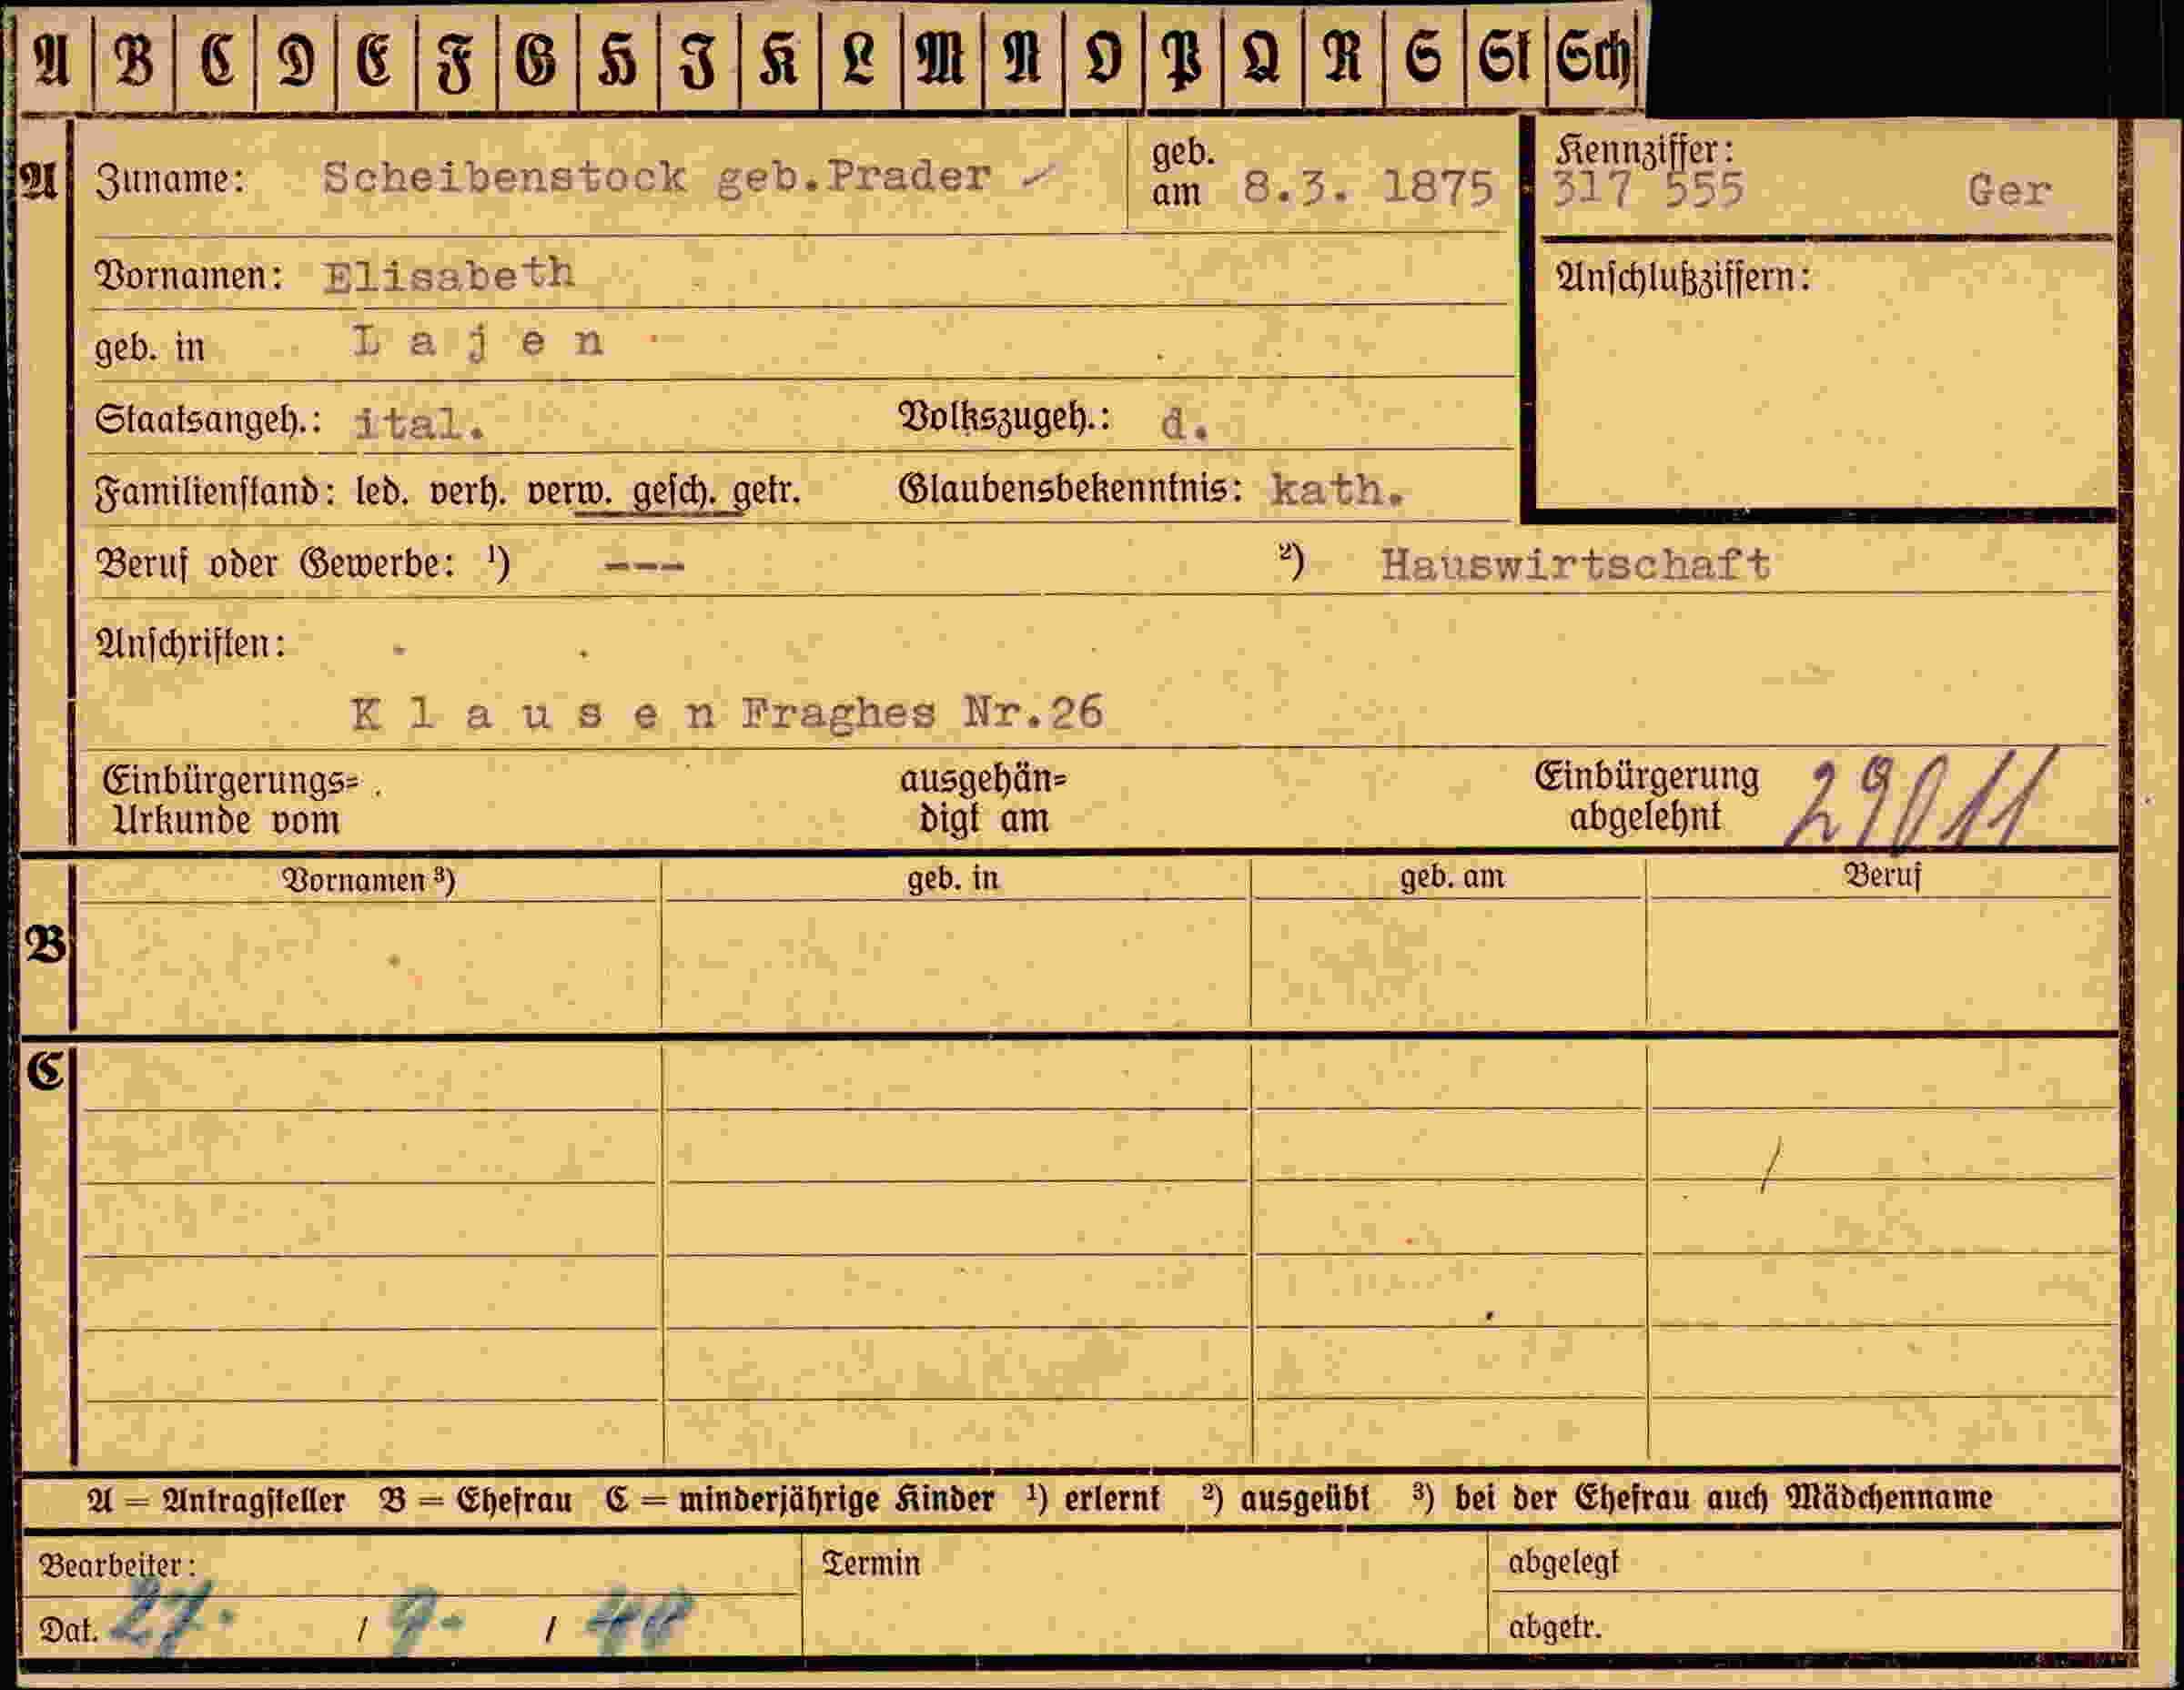 A B C D E F G H I K L M N O P Q R S St Sch
A Zuname: Scheibenstock geb.Prader geb. am 8.3. 1875 Kennziffer: 317 555 Ger
Vornamen: Elisabeth Anschlußziffern:
geb. in Lajen
Staatsangeh.: ital. Volkszugeh.: d.
Familienstand: led. verh. verw. gesch. getr. Glaubensbekenntnis: kath.
Beruf oder Gewerbe: ¹) --- ²) Hauswirtschaft
Anschriften:
Klausen Fraghes Nr.26
Einbürgerungs= ausgehän= Einbürgerung
Urkunde vom digt am abgelehnt 29011
Vornamen ³) geb. in geb. am Beruf
B
C
A = Antragsteller B = Ehefrau C = minderjährige Kinder ¹) erlernt ²) ausgeübt ³) bei der Ehefrau auch Mädchenname
Bearbeiter: Termin abgelegt
Dat. 27. / 9. / 40 abgetr.